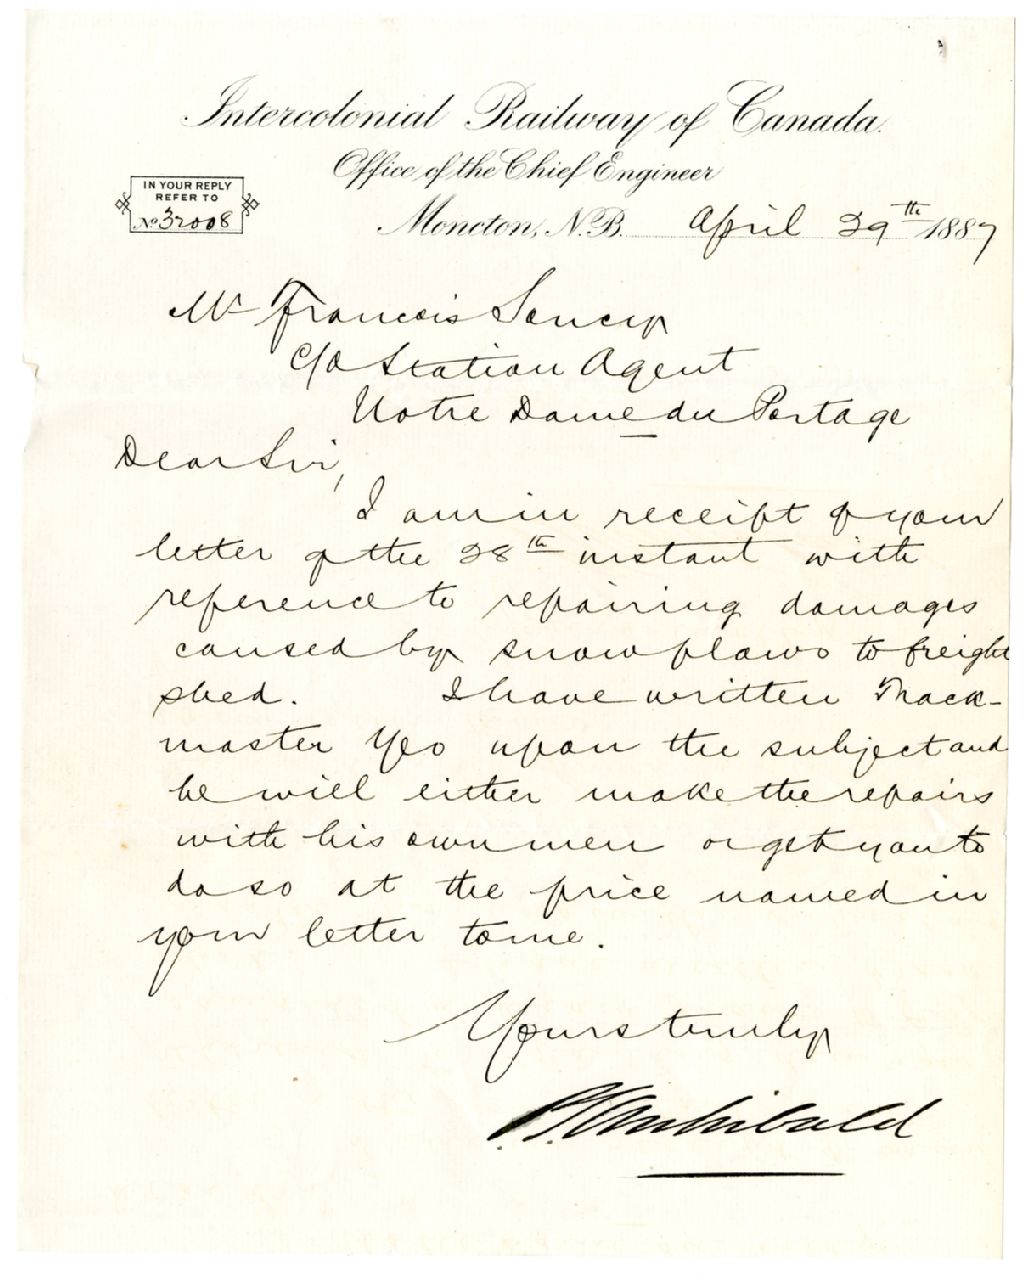 Intercolonial Railway of Canada.
Office of the Chief Engineer
IN YOUR REPLY
REFER TO
No 32008
Moncton, N.B. April 29th 1887
Mr Francois Soucy
C/o Station Agent
Notre Dame du Portage
Dear Sir,
I am in receipt of your
letter of the 28th instant with
reference to repairing damages
caused by snow plows to freight
shed. I have written Track-
master Yeo upon the subject and
he will either make the repairs
with his own men or get you to
do so at the price named in
your letter to me.
Yours truly
P. S. Archibald